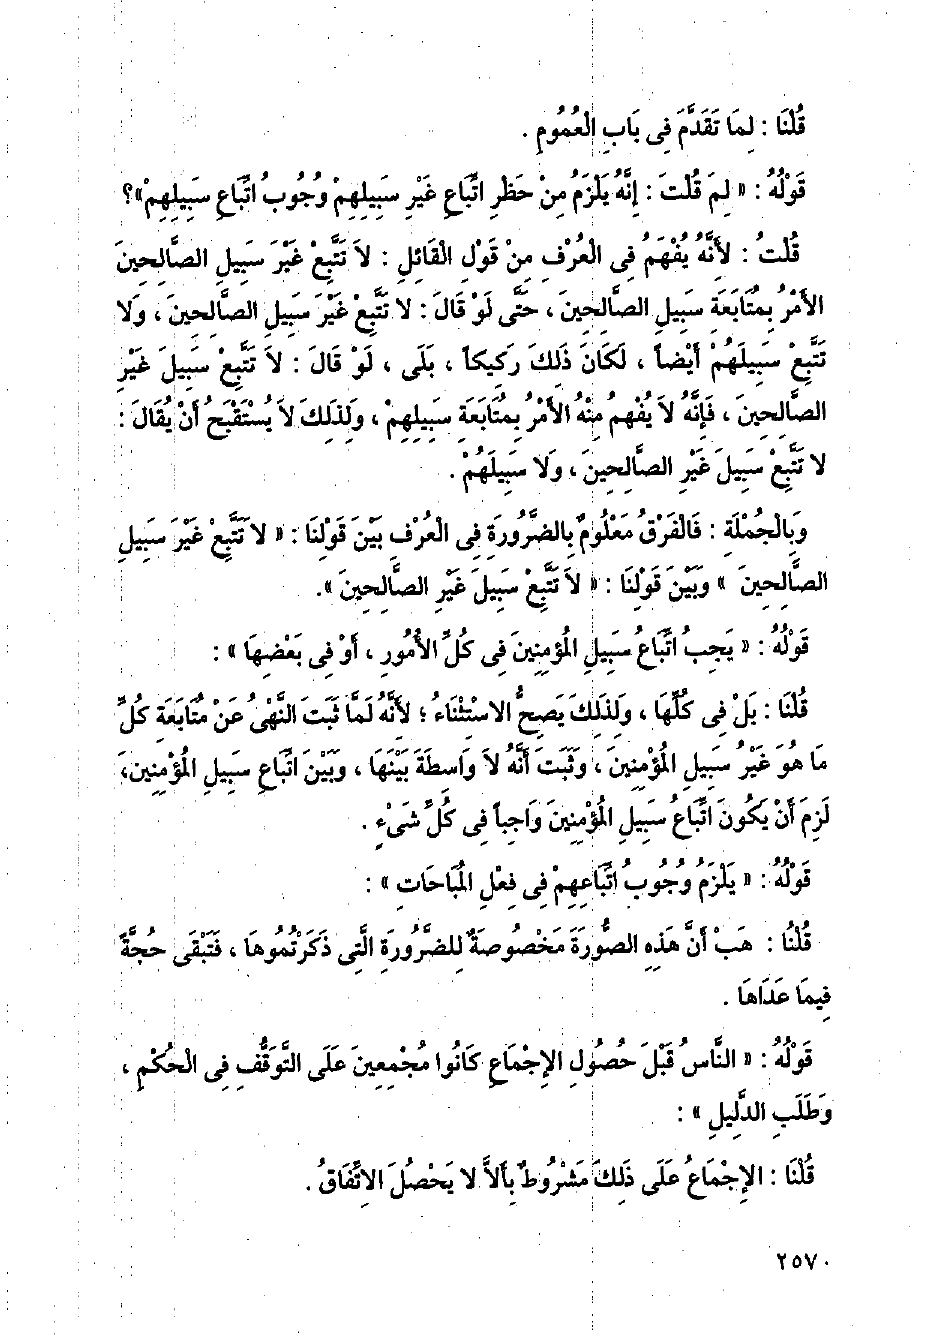 قُلْنَا : لِمَا تَقَدَّمَ فِى بَابِ الْعُمُومِ .
قَوْلُهُ : « لِمَ قُلْتَ : إِنَّهُ يَلْزَمُ مِنْ حَظْرِ اتِّبَاعِ غَيْرِ سَبِيلِهِمْ وُجُوبُ اتِّبَاعِ سَبِيلِهِمْ»؟
قُلْتُ : لأَنَّهُ يُفْهَمُ فِى الْعُرْفِ مِنْ قَوْلِ الْقَائِلِ : لاَ تَتَّبِعْ غَيْرَ سَبِيلِ الصَّالِحِينَ
الأَمْرُ بِمُتَابَعَةِ سَبِيلِ الصَّالِحِينَ ، حَتَّى لَوْ قَالَ : لا تَتَّبِعْ غَيْرَ سَبِيلِ الصَّالِحِينَ ، وَلا
تَتَّبِعْ سَبِيلَهُمْ أَيْضاً ، لَكَانَ ذَلِكَ رَكِيكاً ، بَلَى ، لَوْ قَالَ : لاَ تَتَّبِعْ سَبِيلَ غَيْرِ
الصَّالِحِينَ ، فَإِنَّهُ لاَ يُفْهِمُ مِنْهُ الأَمْرُ بِمُتَابَعَةِ سَبِيلِهِمْ ، وَلِذَلِكَ لاَ يُسْتَقْبَحُ أَنْ يُقَالَ :
لا تَتَّبِعْ سَبِيلَ غَيْرِ الصَّالِحِينَ ، وَلا سَبِيلَهُمْ .
وَبِالْجُمْلَةِ : فَالْفَرْقُ مَعْلُومٌ بِالضَّرُورَةِ فِى الْعُرْفِ بَيْنَ قَوْلِنَا : « لاَ تَتَّبِعْ غَيْرَ سَبِيلِ
الصَّالِحِينَ » وَبَيْنَ قَوْلِنَا : « لاَ تَتَّبِعْ سَبِيلَ غَيْرِ الصَّالِحِينَ ».
قَوْلُهُ : « يَجِبُ اتِّبَاعُ سَبِيلِ الْمُؤمِنِينَ فِى كُلِّ الأُمُورِ ، أَوْ فِى بَعْضِهَا » :
قُلْنَا : بَلْ فِى كُلِّهَا ، وَلِذَلِكَ يَصِحُّ الاسْتِثْنَاءُ ؛ لأَنَّهُ لَمَّا ثَبَتَ النَّهْىُ عَنْ مُتَابَعَةِ كُلِّ
مَا هُوَ غَيْرُ سَبِيلِ الْمُؤْمِنِينَ ، وَثَبَتَ أَنَّهُ لاَ وَاسِطَةَ بَيْنَهَا ، وَبَيْنَ اتِّبَاعِ سَبِيلِ الْمُؤْمِنِينَ،
لَزِمَ أَنْ يَكُونَ اتِّبَاعُ سَبِيلِ الْمُؤْمِنِينَ وَاجِباً فِى كُلِّ شَىْءٍ .
قَوْلُهُ : « يَلْزَمُ وُجُوبُ اتِّبَاعِهِمْ فِى فِعْلِ الْمُبَاحَاتِ » :
قُلْنُا : هَبْ أَنَّ هَذِهِ الصُّورَةَ مَخْصُوصَةٌ لِلضَّرُورَةِ الَّتِى ذَكَرْتُمُوهَا ، فَتَبْقَى حُجَّةً
فِيمَا عَدَاهَا .
قَوْلُهُ : « النَّاسُ قَبْلَ حُصُولِ الإِجْمَاعِ كَانُوا مُجْمِعِينَ عَلَى التَّوَقُّفِ فِى الْحُكْمِ ،
وَطَلَبِ الدَّلِيلِ » :
قُلْنَا : الإِجْمَاعُ عَلَى ذَلِكَ مَشْرُوطٌ بِأَلاَّ لا يَحْصُلَ الاِتِّفَاقُ .
٢٥٧٠